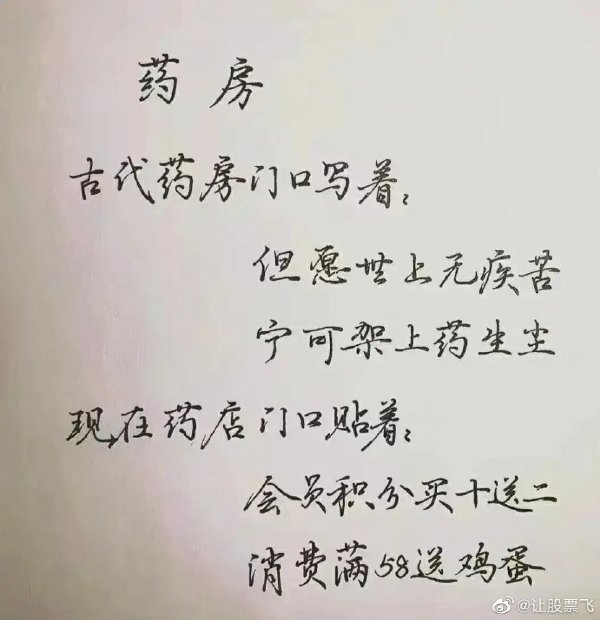 药房
古代药房门口写着：
但愿世上无疾苦
宁可架上药生尘
现在药店门口贴着：
会员积分买十送二
消费满58送鸡蛋
@让股票飞